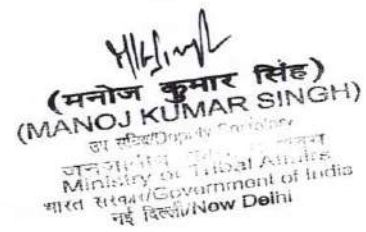 (मनोज कुमार सिंह)
(MANOJ KUMAR SINGH)
उप सचिव/Deputy Secretary
Ministry of Tribal Affairs
भारत सरकार/Government of India
नई दिल्ली/New Delhi